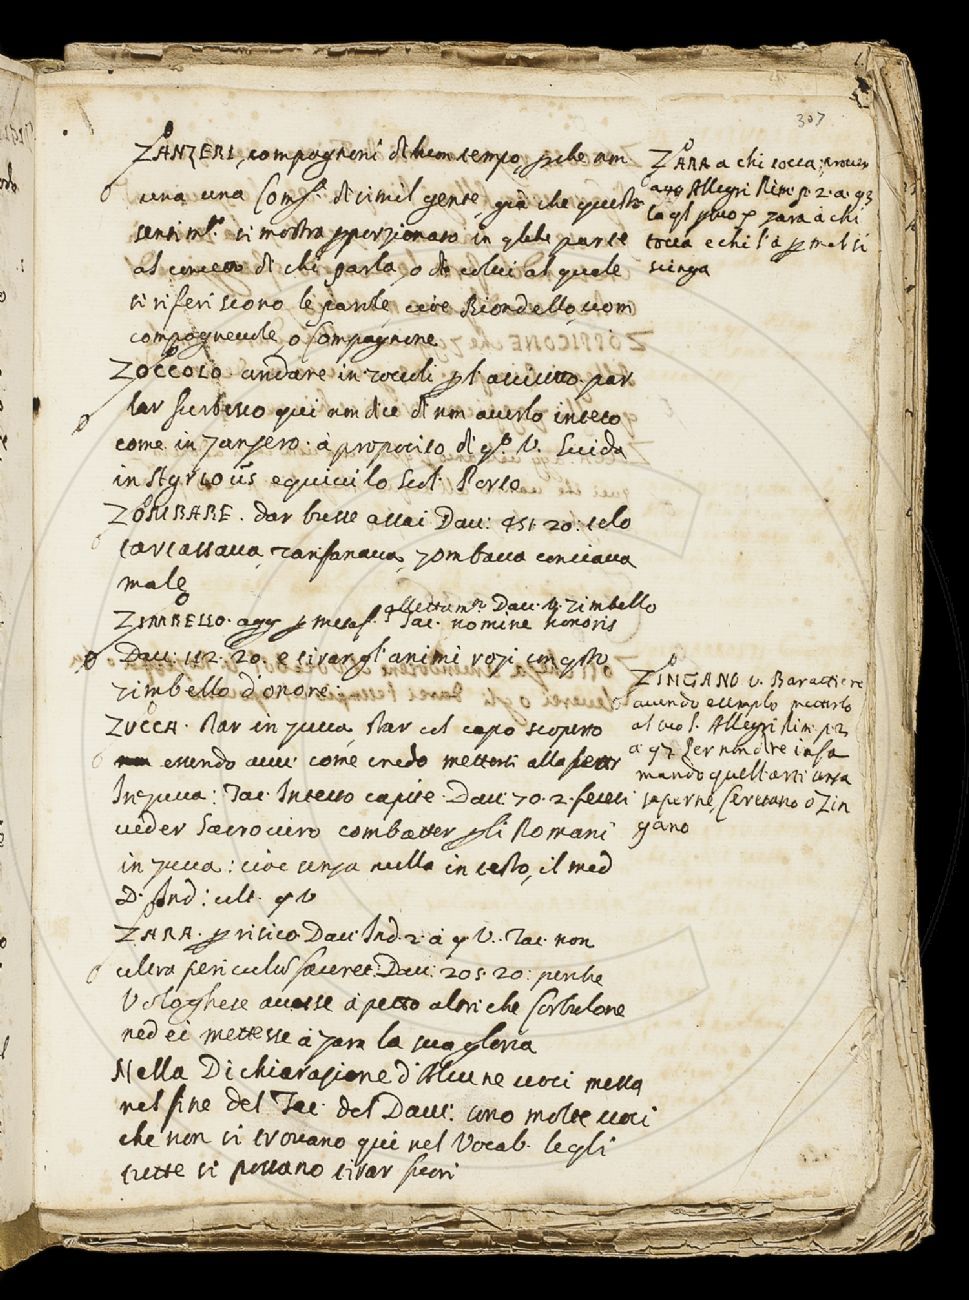 307
ZANZERI, compagnoni di buon tempo, perche non
una una Comp.a di simil gente, già che questo
sentim.to si mostra pporzionato in qlche parte
al concetto di chi parla, o di colui al quale
si riferiscono le parole, cioè Biondello, uom
compagneuole, o Compagnone
ZOCCOLO andare in zoccoli p l'asciutto. par
lar furbesco qui non dice di non auerlo inteso
come in Zanzero. à proposito di qo. V. Suida
in
ZOMBARE. dar busse assai Dau: 451. 20: selo
tartassaua, zanfanaua, zombaua conciaua
male
ZIMBELLO. agg p metaf. Dau. zimbello
Tac. nomine honoris
Dau: 112. 20. e tirar gl'animi rozi con qsto
zimbello d'onore:
ZUCCA. Star in zucca, Star col capo scoperto
essendo come credo mettersi alla
In zucca: Tac. Intecto capite. Dau: 70. 2. feceli
ueder Sacrouiro combatter gli Romani
in zucca: cioè senza nulla in testo, il med
D. Ind: ult. q V
ZARA. p risico Dau: Ind. 2. à q V. Tac. non
ultra periculū faceret. Dau: 205. 20: perche
Vologhese auesse à petto altri che Corbulone
ned ei mettesse à zara la sua gloria
Nella Dichiarazione d'Alcune uoci messa
nel fine del Tac. del Dau: sono molte uoci
che non si trouano qui nel Vocab. le qli
tutte si possano tirar fuori
ZARA a chi tocca; prouer
Allegri Rim. p. 2. a. 93
zara à chi
tocca e chi l'à p mal si
scinga
ZINGANO V. Barattiere
auendo esemplo mettarlo
al suo l. Allegri Rim. p. 2
a 97 Ser non dire infa
mando quell'arti senza
saperne, Ceretano o Zin
gano